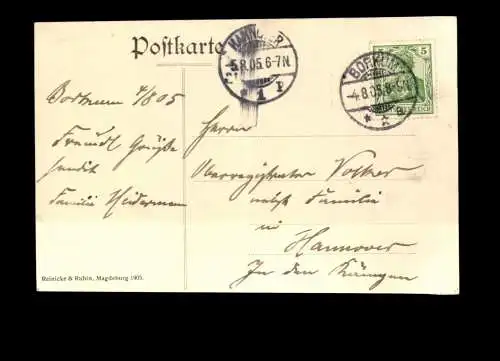 Postkarte
HANNOVER
5.8.05.6-7N
1 P
BORKUM
4.8.05.8-9
a
5
Borkum 4/8 05
Freundl Grüße
sendet
Familie Heidermann
Herrn
Oberregistrator Volker
nebst Familie
in
Hannover
In den Kämpen
Reinicke & Rubin, Magdeburg 1905.